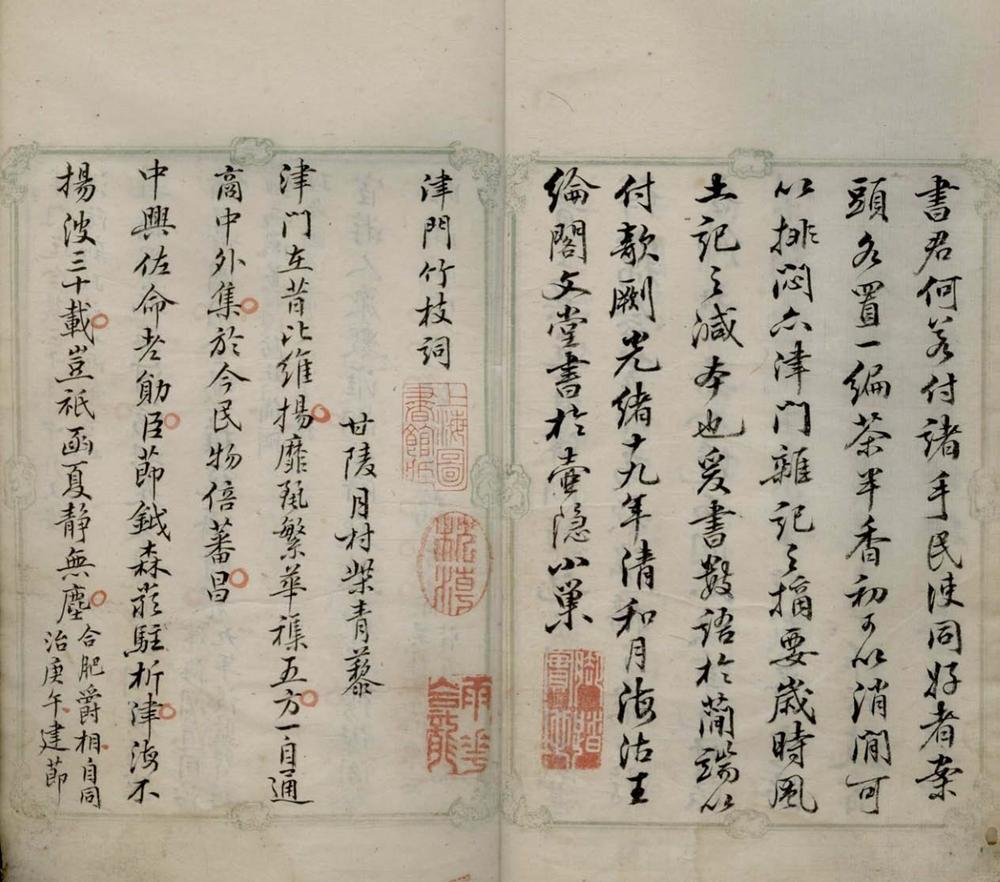 書君何若付諸手民使同好者案
頭各置一編茶半香初可以消閒可
以排悶亦津门雜記之摘要歲時風
土記之減本也爰書数語於蕳端以
付歆劂光緒十九年清和月海沽王
綸閣文堂書於壷隐小巢
津門竹枝詞
上海圖書館所
甘陵月村柴青藜
津门在昔比維揚靡䴡繁华襍五方一自通
商中外集於今民物倍蕃昌
中興佐命老勛臣節鉞森嚴駐析津海不
揚波三十載豈祇函夏静無塵合肥爵相自同
治庚午建節